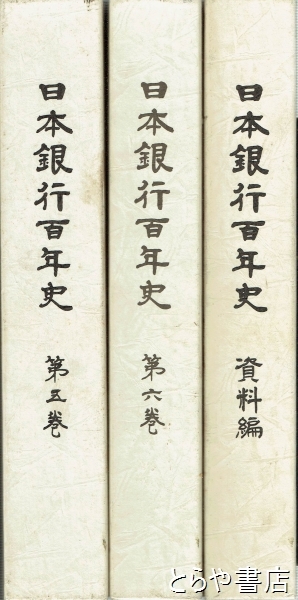 日本銀行百年史 第五巻
日本銀行百年史 第六巻
日本銀行百年史 資料編
とらや書店